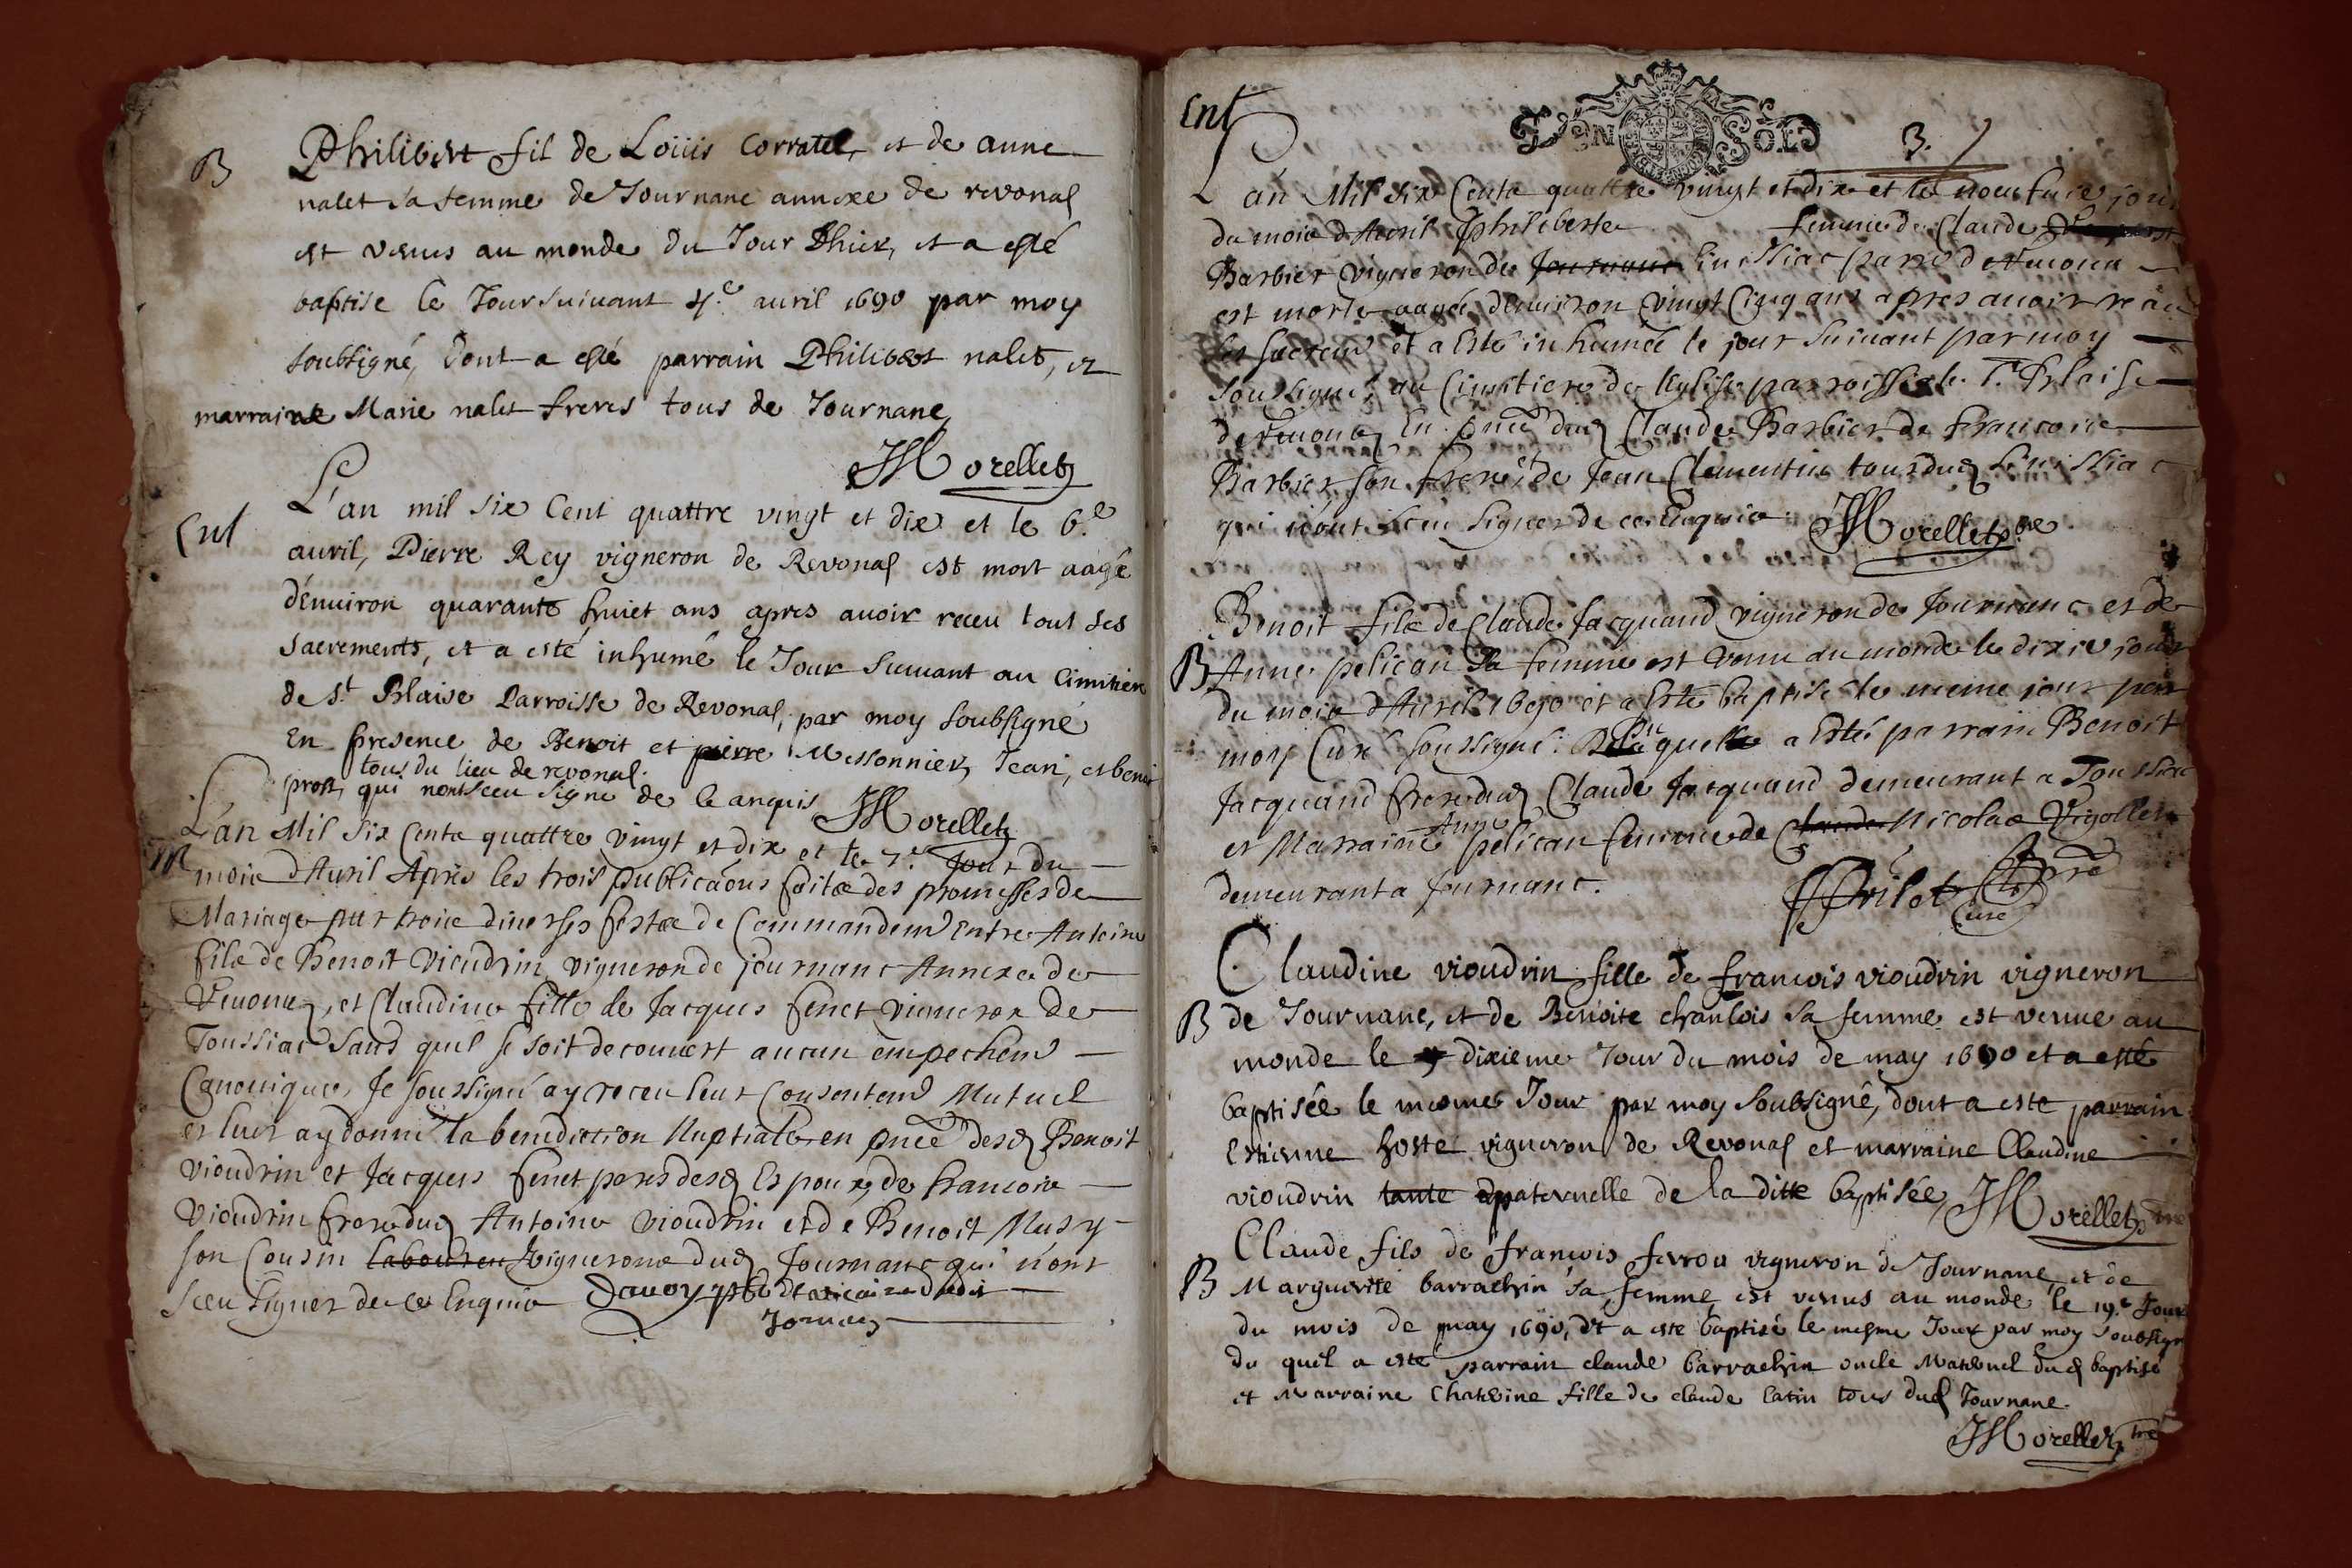 B
Philibert fil de Loüis Corratel, et de anne
nalet sa femme de Journanc annexe de revonas
est venus au monde du Jour Dhier, et a esté
baptise le Jour suivant 4.e avril 1690 par moy
soubsigné, dont a esté parrain Philibert nalet, et
marraine Marie nalet freres tous de Journanc
JMorellet
Ent
L'an mil six Cent quattre vingt et dix et le 6.e
auril, Pierre Rey vigneron de Revonas est mort aagé
d'énuiron quarante huict ans apres auoir receu tout ses
sacrements, et a esté inhumé le Jour suiuant au Cimitiere
de St Blaise Parroisse de Revonas, par moy soubsigné
En presence de Benoit et pierre Messonnier, Jean, et benoit
tous du lieu de revonas.
prost, qui nont sceu signe de ce anquis JMorellet
M
L'an Mil six Cents quattre vingt et dix et le 7.e Jour du
mois d'Auril Après les trois publicaons faites des promesses de
Mariage par trois diuerses festes de Commandemt Entre Antoine
fils de Benoit Vioudrin vigneron de journanc Annexe de
Reuonas, et Claudine fille de Jacques fenet vigneron de
Toussiac sans quil se soit decouuert aucun empechemt
Canonique, Je soussigné ay receu leur Consentemt Mutuel
et leur ay donné la benediction Nuptiale en pnce desd Benoit
Vioudrin et Jacques fenet peres desd Espoux, de francois
Vioudrin frere dud Antoine Vioudrin et de Benoit Musy
son Cousin laboureu vignerons dud Journanc qui n'ont
sceu signer de ce Enquis Dauoy ptre et vicaire dudit
Jornanc
Ent
GEN SOLS
3.
L'an Mil six Cents quattre vingt et dix et le neufuie jour
du mois d'Auril Philiberte femme de Claude
Barbier vigneron de Journanc Enissiac parroe de Reuonas
est morte aagée d'enuiron vingt Cinq ans apres auoir receu
ses sacremts et a Esté inhumée le jour suiuant par moy
soussigné, au Cimitiere de leglise parroissiale St Blaise
de Reuonas En pnce dud Claude Barbier de francois
Barbier son frere et de Jean Clementin tous dud Enissiac
qui n'ont sceu signer de ce Enquis JMorellet ptre
B
Benoit fils de Claude Jacquand vigneron de Journanc et de
Anne pelican sa femme est venu au monde le dixie jour
du mois d'Auril 1690 et a Esté baptisé le meme jour par
moy Curé soussigné. Duquel a Esté parrain Benoit
Jacquand frere dud Claude Jacquand demeurant a Toussiac
et Marraine Anne pelican femme de Claude Nicolas Vigollet
demeurant a Journanc.
Curé
B
Claudine vioudrin fille de francois vioudrin vigneron
de Journanc, et de Benoite chanlois sa femme est venue au
monde le dixieme Jour du mois de may 1690 et a esté
baptisée le mesme Jour par moy soubsigné, dont a este parrain
Estienne hoste vigneron de Revonas et marraine Claudine
vioudrin tante paternelle de la ditte baptisée, JMorellet ptre
B
Claude fils de francois ferrou vigneron de Journanc, et de
Marguerite barrachin sa femme, est venus au monde le 19.e Jour
du mois de may 1690, et a este baptisé le mesme Jour par moy soubsigne
du quel a esté parrain claude barrachin oncle Maternel dud baptisé
et Marraine Chaterine fille de claude catin tous dud Journanc.
JMorellet ptre